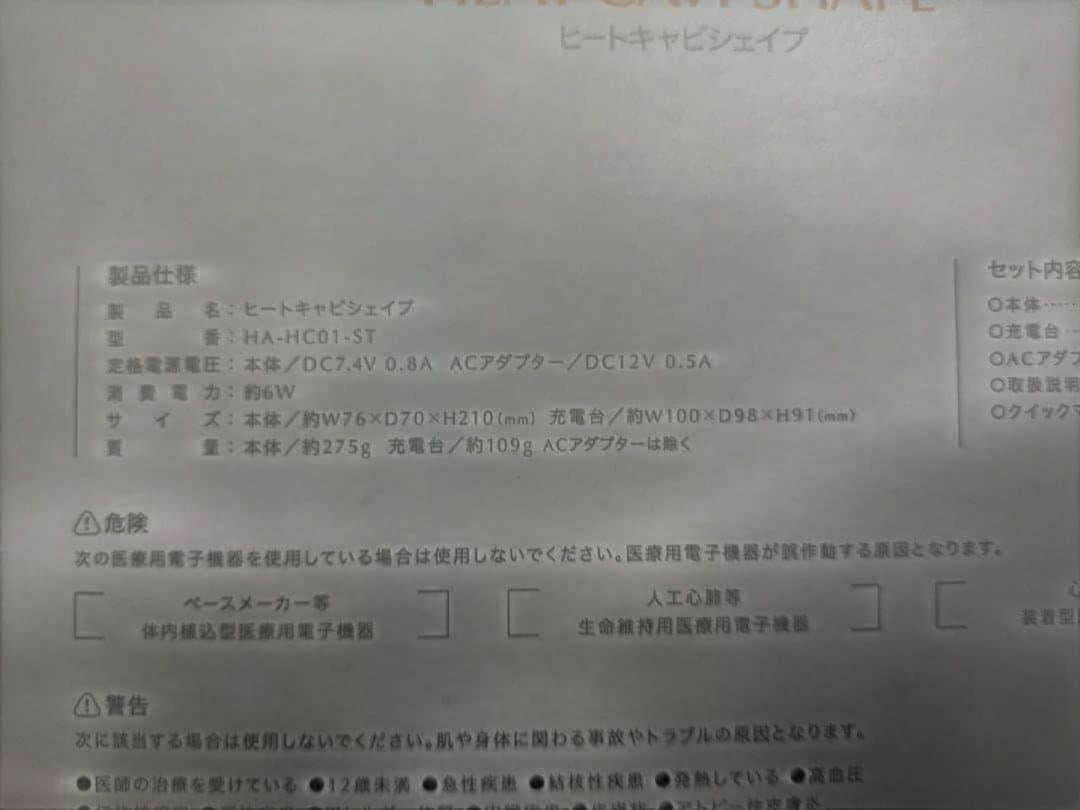 ヒートキャビシェイプ
製品仕様
製品名：ヒートキャビシェイプ
型番：HA-HC01-ST
定格電源電圧：本体／DC7.4V 0.8A ACアダプター／DC12V 0.5A
消費電力：約6W
サイズ：本体／約W76×D70×H210(mm) 充電台／約W100×D98×H91(mm)
質量：本体／約275g 充電台／約109g ACアダプターは除く
セット内容
○本体……
○充電台‥
○ACアダプ
○取扱説明
○クイックマ
⚠危険
次の医療用電子機器を使用している場合は使用しないでください。医療用電子機器が誤作動する原因となります。
ペースメーカー等
体内植込型医療用電子機器
人工心肺等
生命維持用医療用電子機器
心
装着型
⚠警告
次に該当する場合は使用しないでください。肌や身体に関わる事故やトラブルの原因となります。
●医師の治療を受けている ●12歳未満 ●急性疾患 ●結核性疾患 ●発熱している ●高血圧